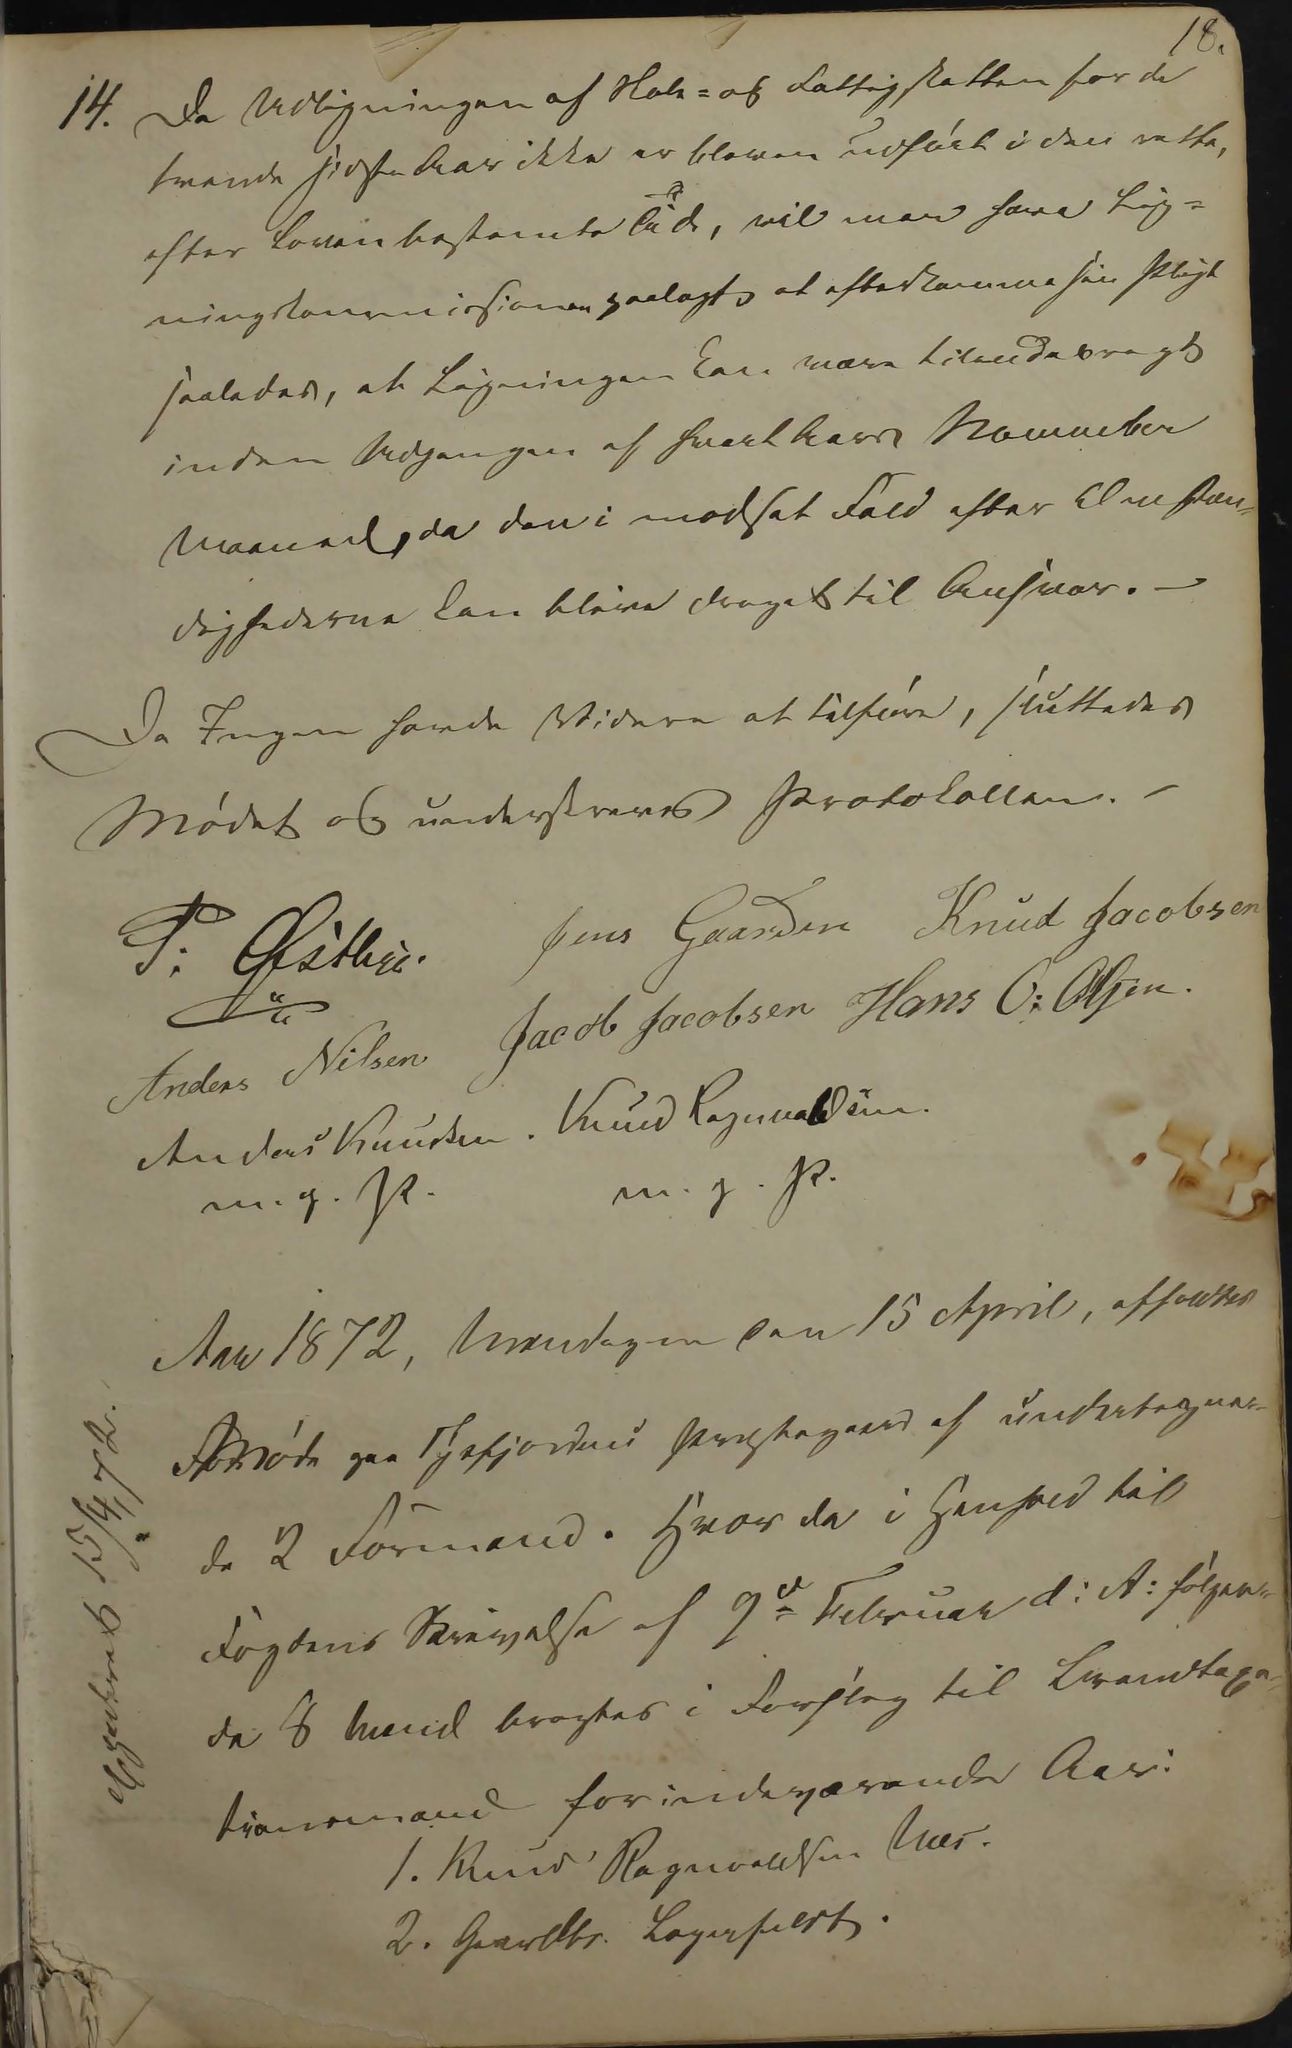 18.
14. Da Udligningen af Skole= og Fattigskatten for de
tvende sidste Aar ikke er bleven udført i den rette,
efter Loven bestemte Tid, vil man have Lig=
ningskommissionen paalagt, at efterkomme sin Pligt
saaledes, at Ligningen kan være tilendebragt
inden Udgangen af hvert Aars November
Maaned, da den i modsat Fald efter Omstæn=
dighederne kan blive draget til Ansvar. –
Da Ingen havde Videre at tilføre, sluttedes
Mødet og underskreves Protokollen. –
P. Østbye. Jens Gaarden Knud Jacobsen
Anders Nilsen Jacob Jacobsen Hans O: Olsen.
Anders Knudsen. Knud Ragnvaldsen.
m. p. P. m. p. P.
Aar 1872, Mandagen den 15 April, afholdtes
Møde paa Tysfjordens Præstegaard af undertegne=
de 2 Formænd. Hvor da i Henhold til
Fogdens Skrivelse af 9de Februar d: A: følgen=
de 8 Mænd bragtes i Forslag til Brandtaxa=
tionsmænd for indeværende Aar:
Expederet 15/4 72.
1. Knud Ragnvaldsen Næs.
2. Gaardbr.